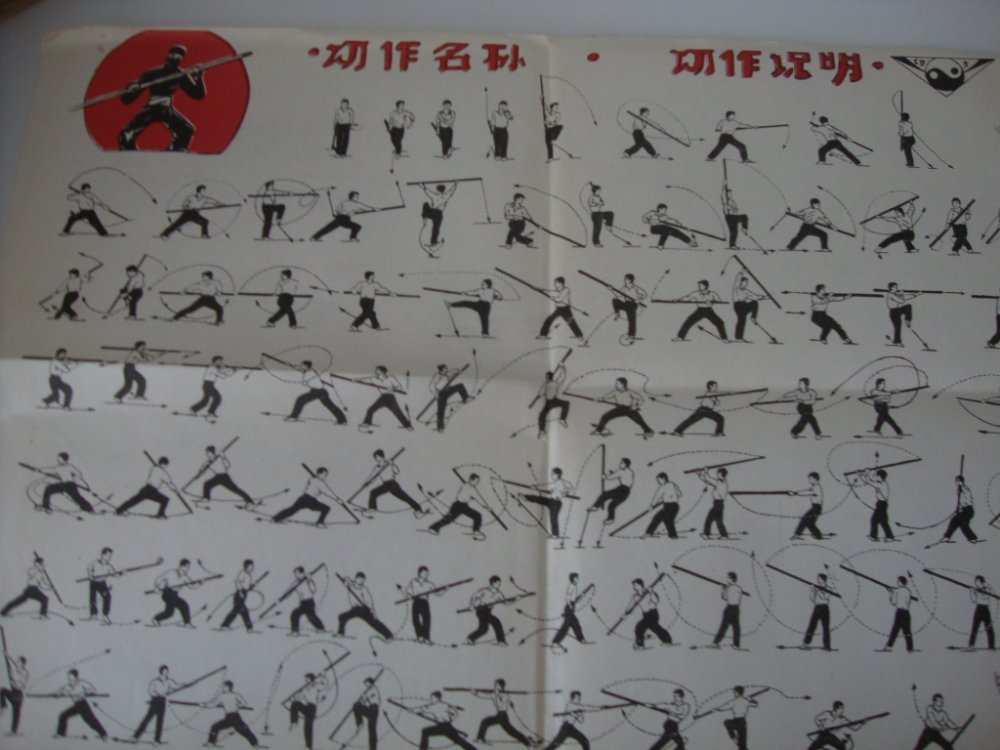 ·动作名称·
动作说明·